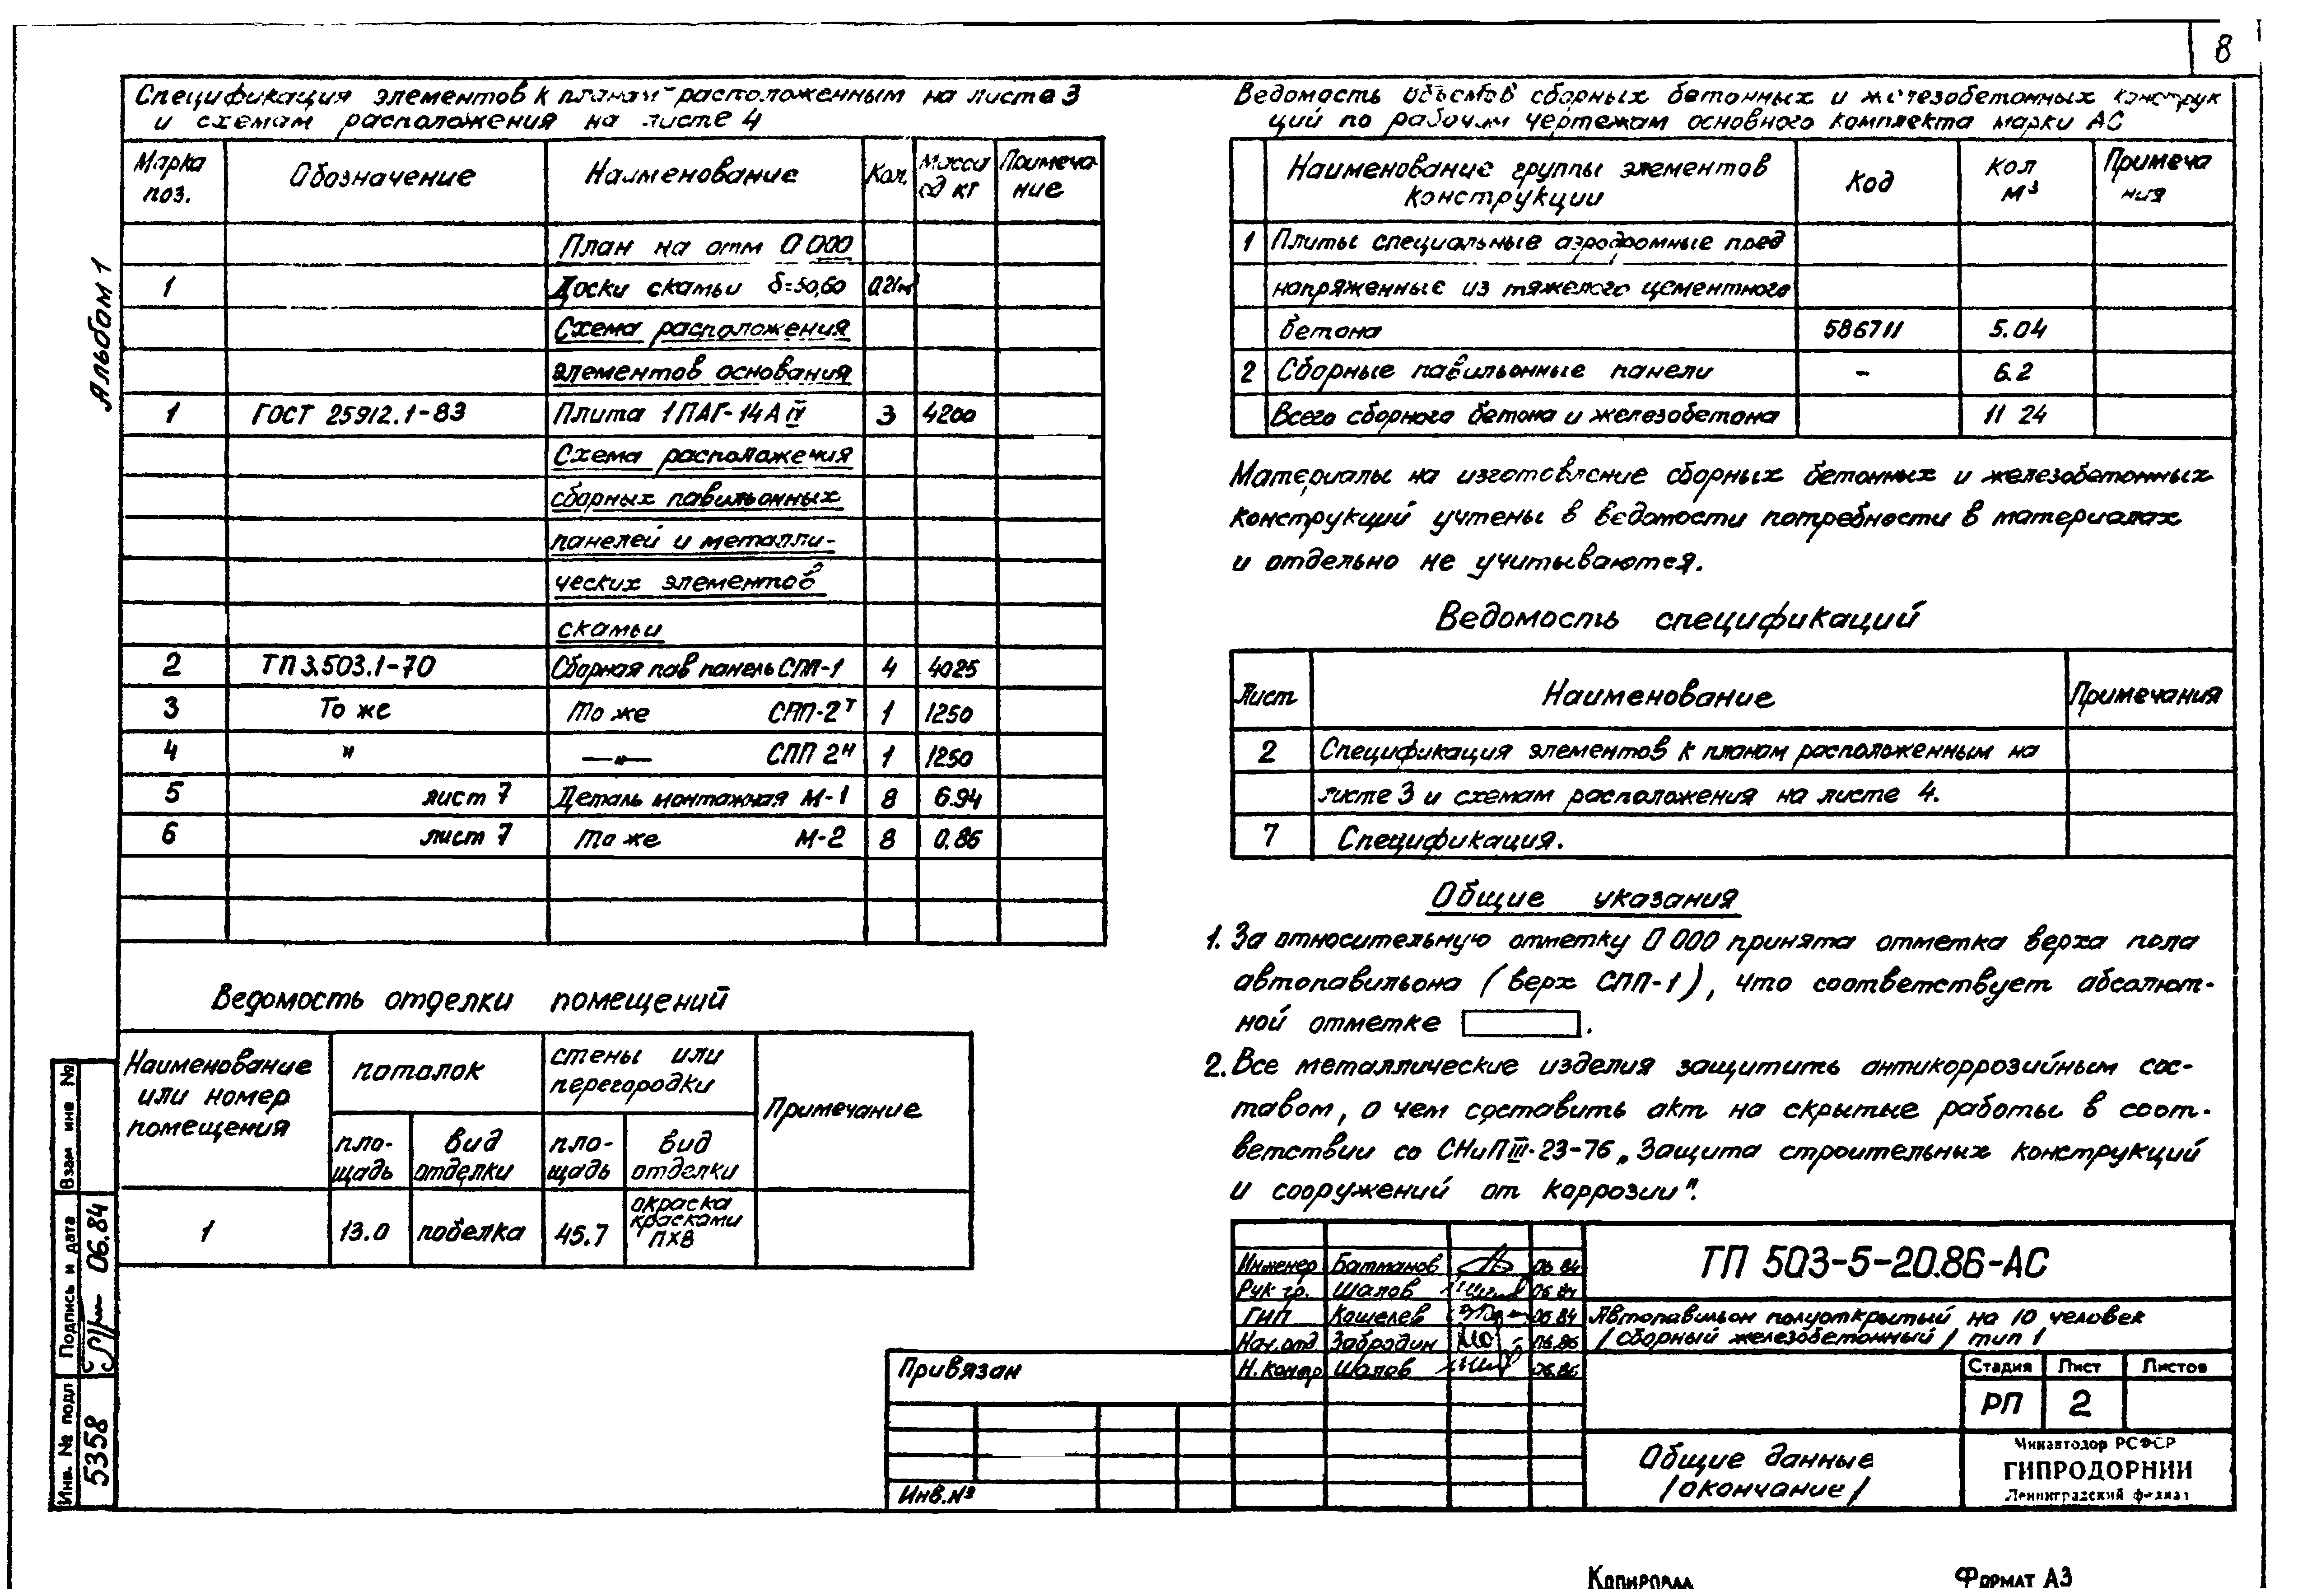 8
Альбом 1
Спецификация элементов к планам расположенным на листе 3
и схемам расположения на листе 4
Марка поз. Обозначение Наименование Кол. Масса ед кг Примечание
План на отм 0 000
1 Доски скамьи δ=50,60 0.21м³
Схема расположения
элементов основания
1 ГОСТ 25912.1-83 Плита 1ПАГ-14А IV 3 4200
Схема расположения
сборных павильонных
панелей и металли-
ческих элементов
скамьи
2 ТП 3.503.1-70 Сборная пав панель СПП-1 4 4025
3 То же То же СПП-2т 1 1250
4 " —"— СПП 2н 1 1250
5 лист 7 Деталь монтажная М-1 8 6.94
6 лист 7 То же М-2 8 0.86
Ведомость отделки помещений
Наименование или номер помещения потолок стены или перегородки Примечание
пло- щадь вид отделки пло- щадь вид отделки
1 13.0 побелка 45.7 окраска красками ПХВ
Ведомость объемов сборных бетонных и железобетонных конструк
ций по рабочим чертежам основного комплекта марки АС
Наименование группы элементов конструкции Код Кол м³ Примеча ния
1 Плиты специальные аэродромные пред
напряженные из тяжелого цементного
бетона 586711 5.04
2 Сборные павильонные панели - 6.2
Всего сборного бетона и железобетона 11 24
Материалы на изготовление сборных бетонных и железобетонных
конструкций учтены в ведомости потребности в материалах
и отдельно не учитываются.
Ведомость спецификаций
Лист Наименование Примечания
2 Спецификация элементов к планам расположенным на
листе 3 и схемам расположения на листе 4.
7 Спецификация.
Общие указания
1. За относительную отметку 0 000 принята отметка верха пола
автопавильона (верх СПП-1), что соответствует абсолют-
ной отметке .
2. Все металлические изделия защитить антикоррозийным сос-
тавом, о чем составить акт на скрытые работы в соот-
ветствии со СНиП III-23-76 „Защита строительных конструкций
и сооружений от коррозии".
Инженер Батманов 06 84
Рук гр. Шалов 06.84
ГИП Кошелев 06 84
Нач. отд Забродин 06.86
Н. контр Шалов 06.86
ТП 503-5-20.86-АС
Автопавильон полуоткрытый на 10 человек
/сборный железобетонный/ тип 1
Стадия Лист Листов
РП 2
Общие данные
/окончание/
Минавтодор РСФСР
ГИПРОДОРНИИ
Ленинградский филиал
Привязан
Инв.№
Взам инв №
Подпись и дата 06.84
Инв. № подл 5358
Копировал
Формат А3